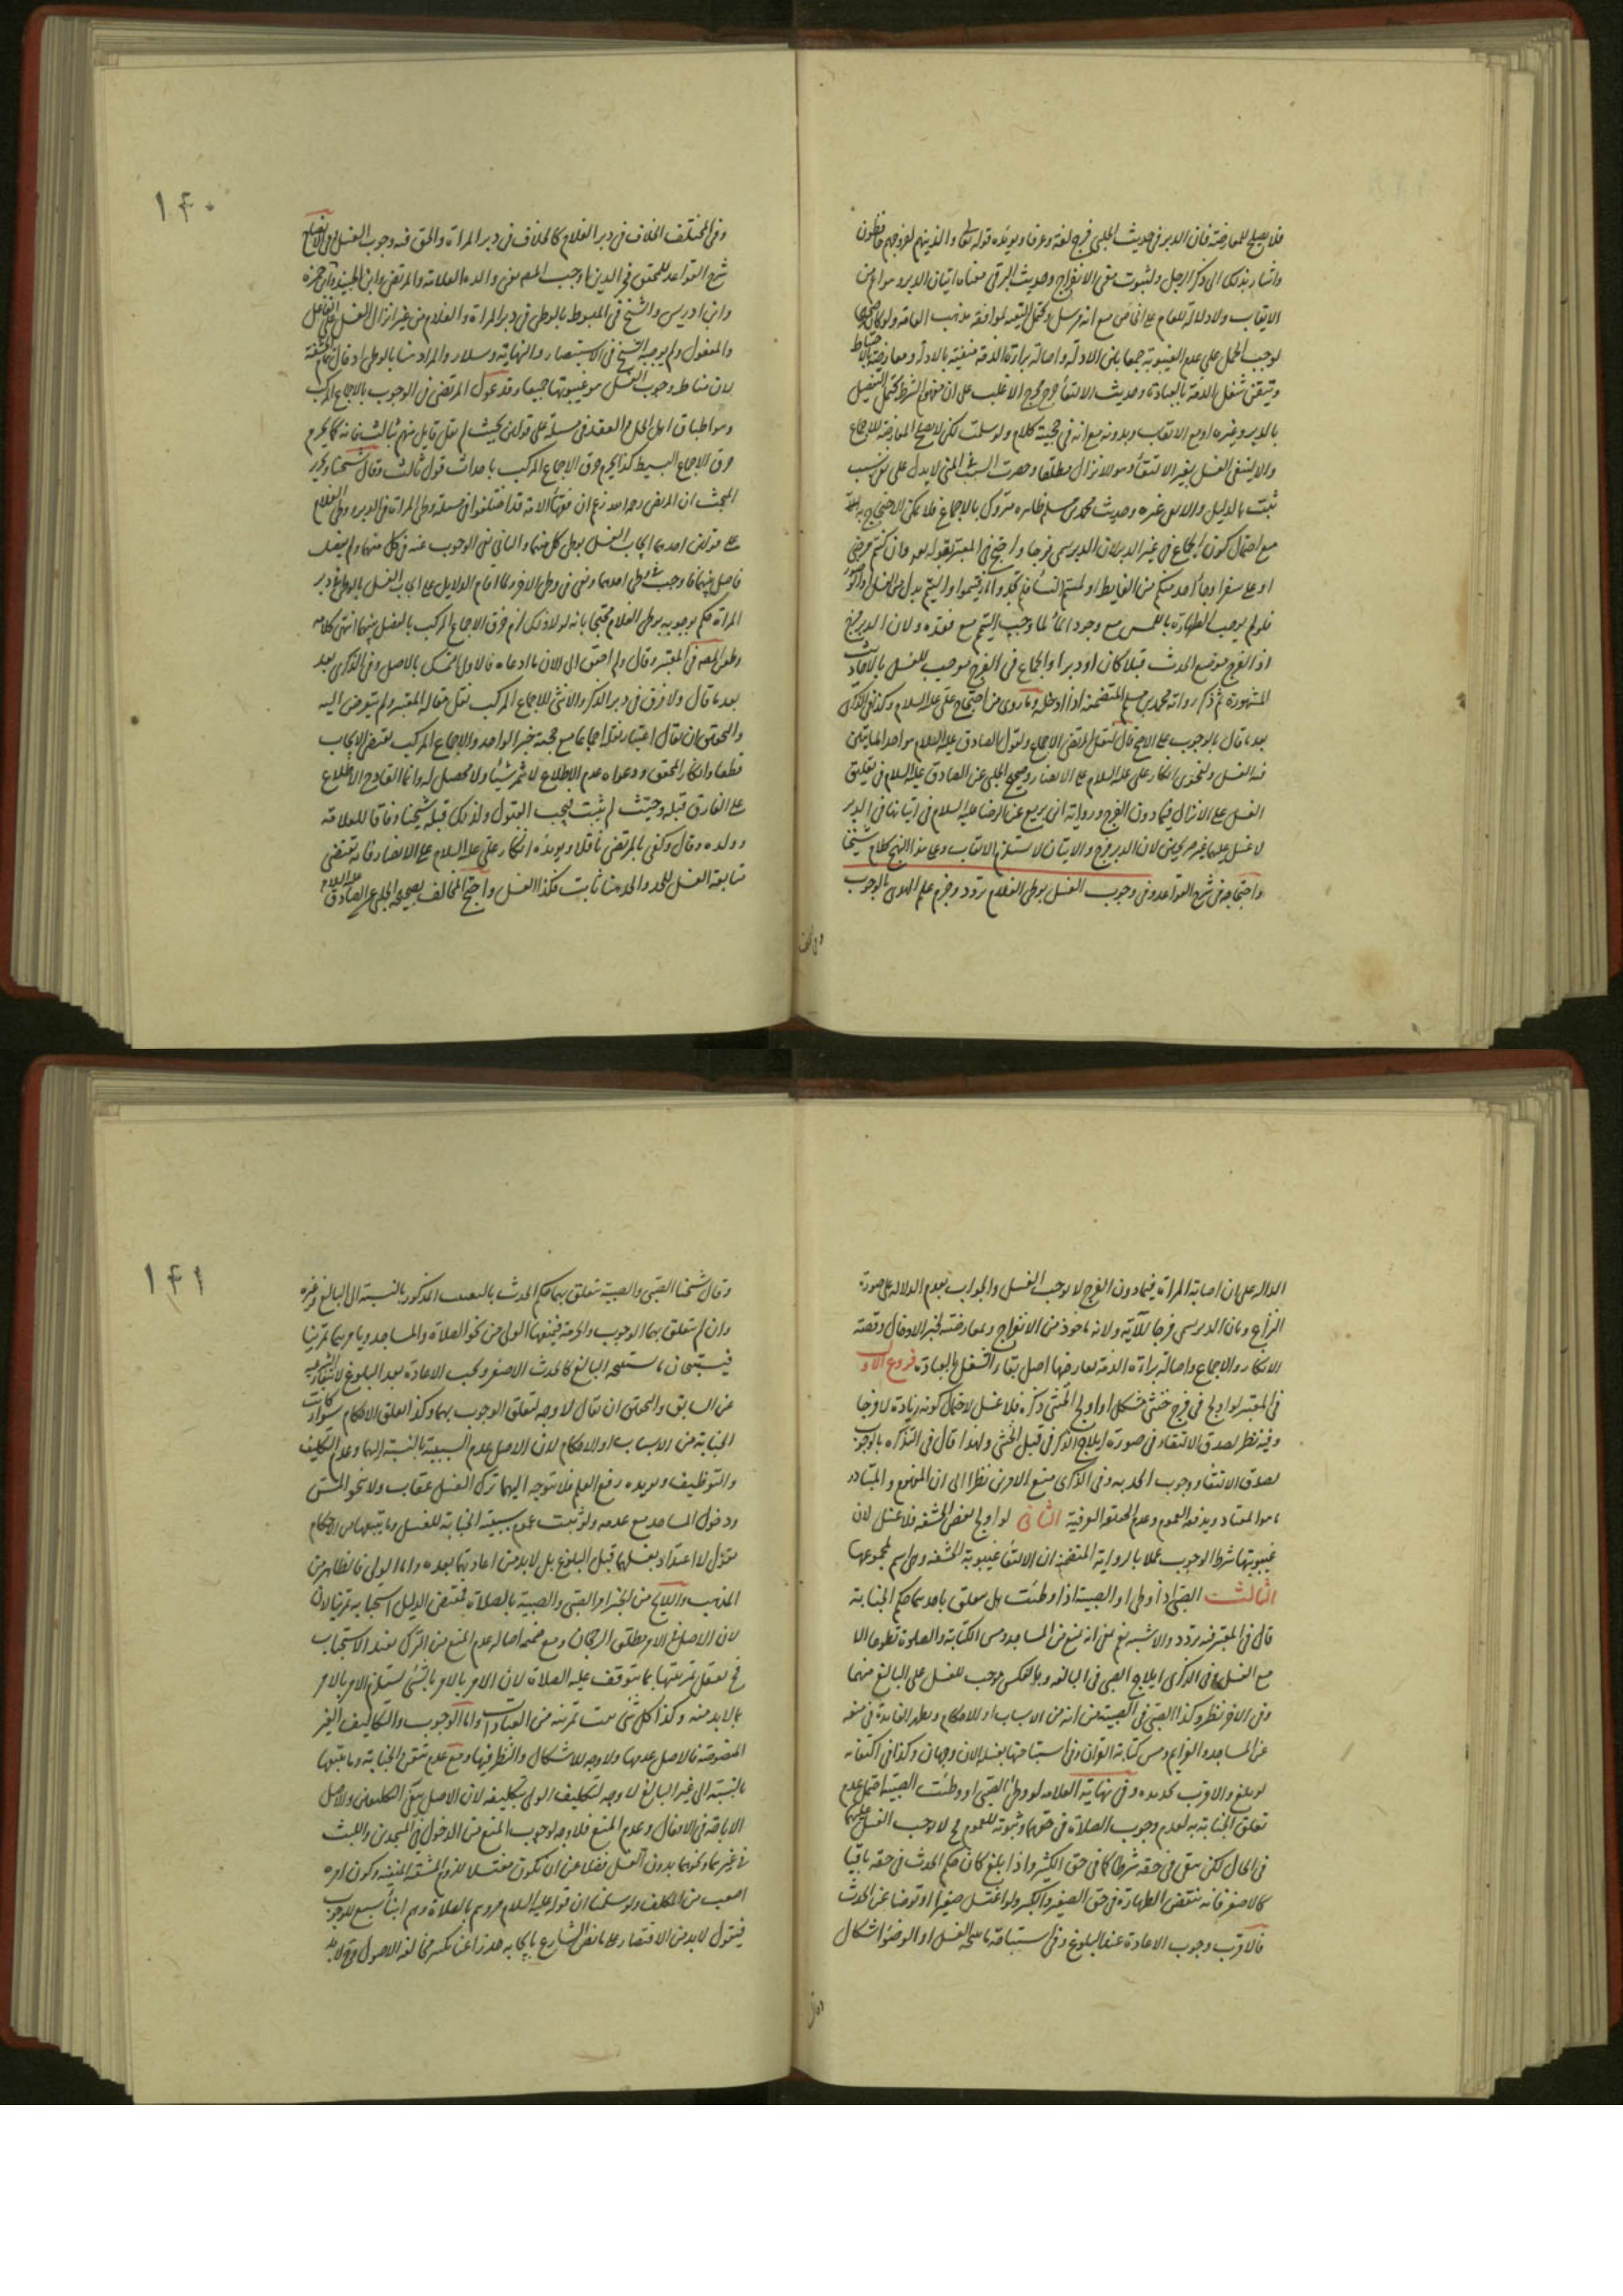 فلا يصلح للمعارضة فان الدبر في حديث الحلبي فرج لغة وعرفا ويؤيده قوله تعالى والذينهم لفروجهم حافظون
واشار بذلك الى ذكر الرجل ولثبوت معنى الانفراج وحديث البرقي معناه اتيان الدبر وهو اعم من
الايقاب ولا دلالة للعام على الخاص مع انه مرسل ويحتمل التقية لموافقة مذهب العامة ولو كان
لوجب الحمل على عدم الغيبوبة جمعا بين الادلة واصالة براءة الذمة منفية بالادلة ومعارضة بالاحتياط
وتيقن شغل الذمة بالعبادة وحديث الالتقاء خرج مخرج الاغلب على ان مفهوم الشرط يحتمل التفصيل
بالدبر وغيره او مع الايقاب وبدونه مع انه في حجيته كلام ولو سلمت لكن لا يصلح للمعارضة للاجماع
والا ينفى الغسل بغير الالتقاء وهو الانزال مطلقا وحصرت السبب في المني لا يدل على نفي سبب
ثبت بالدليل وحديث محمد بن مسلم ظاهره متروك بالاجماع فلا يمكن الاحتجاج به
مع احتمال كون الجماع في غير الدبر لان الدبر يسمى فرجا واحتج في المعتبر بقوله تعالى وان كنتم مرضى
او على سفر او جاء احد منكم من الغايط او لمستم النساء فلم تجدوا ماء فتيمموا والتيمم بدل من الغسل
فلو لم يوجب الطهارة باللمس مع وجود الماء لما وجب التيمم مع فقده ولان الدبر فرج
اذ الفرج موضع الحدث قبلا كان او دبرا والجماع في الفرج موجب للغسل بالاحاديث
المشهورة ثم ذكر رواية محمد بن مسلم المتضمنة اذا ادخله وما روى من احتجاج علي عليه السلام وكذا في الذكرى
بعد ما قال بالوجوب على الاصح قال لنقل المرتضى الاجماع ولقول الصادق عليه السلام هو احد الماتيين
فيه الغسل ولفحوى انكار علي عليه السلام على الانصار وصحيح الحلبي عن الصادق عليه السلام في تعليق
الغسل على الانزال فيما دون الفرج ورواية ابن بزيع عن الرضا عليه السلام في اتيانها في الدبر
لا غسل عليهما غير صريحتين لان الدبر فرج والاتيان لا يستلزم الايقاب وعلى هذا النهج كلام شيخنا
واحتجاجه في شرح القواعد وفي وجوب الغسل بوطي الغلام تردد وجزم علم الهدى بالوجوب
١٤٠
وفي المختلف الخلاف في دبر الغلام كالخلاف في دبر المراة والحق فيه وجوب الغسل وفي الايضاح
شرح القواعد للمحقق فخر الدين اوجب المصنف والده العلامة والمرتضى وابن الجنيد وابن حمزة
وابن ادريس والشيخ في المبسوط بالوطي في دبر المراة والغلام من غير انزال الغسل على الفاعل
والمفعول ولم يوجبه الشيخ في الاستبصار والنهاية وسلار والمراد هنا بالوطي ادخال تمام الحشفة
لان مناط وجوب الغسل هو غيبوبتها جميعا وقد عول المرتضى في الوجوب بالاجماع المركب
وهو اطباق اهل الحل والعقد في مسئلة على قولين بحيث لم يقل قايل منهم بثالث فانه كما يحرم
خرق الاجماع البسيط كذا يحرم خرق الاجماع المركب باحداث قول ثالث وقال شيخنا وتحرير
المبحث ان المرتضى رحمه الله زعم ان فقهاء الامة قد اختلفوا في مسئلة وطي المراة في الدبر ووطي الغلام
على قولين احدهما ايجاب الغسل بوطي كل منهما والثاني نفي الوجوب عنه في كل منهما ولم يفصل
فاصل بينهما فاوجب بوطي احدهما ونفى في وطي الاخر ولما اقام الدلايل على ايجاب الغسل بالوطي في دبر
المراة حكم بوجوبه بوطي الغلام محتجا بانه لولا ذلك لزم خرق الاجماع المركب بالفصل بينهما انتهى كلامه
وطعن المصنف في المعتبر وقال ولم احقق الى الان ما ادعاه فالاولى التمسك بالاصل وفي الذكرى بعد
بعد ما قال ولا فرق في دبر الذكر والانثى للاجماع المركب نقل مقالة المعتبر ولم يتعرض اليه
والتحقيق ان يقال اعتبار نقل اجماعا مع حجية خبر الواحد والاجماع المركب يقتضي الايجاب
قطعا وانكار المحقق ودعواه عدم الاطلاع لا يثمر شيئا ولا محصل له وانما القادح الاطلاع
على الفارق قبله وحيث لم يثبت يجب القبول ولذلك قبله شيخنا وفاقا للعلامة
وولده وقال وكفى بالمرتضى ناقلا ويؤيده انكار علي عليه السلام على الانصار فانه يقتضي
متابعة الغسل للحد والحد هنا ثابت فكذا الغسل واحتج المخالف بصحيحة الحلبي عن الصادق عليه السلام
الدالة على ان اصابة المراة فيما دون الفرج لا يوجب الغسل والجواب بعدم الدلالة على صورة
النزاع وبان الدبر يسمى فرجا للآية ولانه ماخوذ من الانفراج وبمعارضته لخبر الادخال وقصة
الانكار والاجماع واصالة براءة الذمة يعارضها اصل بقاء الشغل بالعبادة فروع الاول
في المعتبر لو اولج في فرج خنثى مشكل او اولج الخنثى ذكره فلا غسل لاحتمال كونه زيادة لا فرجا
وفيه نظر لصدق الالتقاء في صورة ايلاج الذكر في قبل الخنثى ولهذا قال في التذكرة بالوجوب
لصدق الالتقاء ووجوب الحد به وفي الذكرى منع الامرين نظرا الى ان المفهوم والمتبادر
هو المعتاد ويدفعه العموم وعدم الحقيقة العرفية الثاني لو اولج بعض الحشفة فلا غسل لان
غيبوبتها شرط الوجوب عملا بالرواية المتضمنة ان الالتقاء غيبوبة الحشفة وهو اسم لمجموعها
الثالث الصبي اذا وطي او الصبية اذا وطئت هل يتعلق بهما حكم الجنابة
قال في المعتبر فيه تردد والاشبه نعم بمعنى انه يمنع من المساجد ومس الكتابة والصلوة تطوعا الا
مع الغسل وفي الذكرى ايلاج الصبي في البالغة وبالعكس موجب للغسل على البالغ منهما
وفي الاخر نظر وكذا الصبي في الصبية من انه من الاسباب او الاحكام ويظهر الفايدة في منعه
عن المساجد والعزايم ومس كتابة القران وفي استباحتها بغسله الان وجهان وكذا في اكتفائه
لو بلغ والاقرب تجديده وفي نهاية العلامة لو وطي الصبي او وطئت الصبية احتمل عدم
تعلق الجنابة به لعدم وجوب الصلاة في حقهما وثبوته للعموم فح لا يجب الغسل عليهما
في الحال لكن يبقى في حقه شرطا كما في حق الكبير واذا بلغ كان حكم الحدث في حقه باقيا
كالاصغر فانه ينقض الطهارة في حق الصغير والكبير ولو اغتسل صغيرا او توضأ عن الحدث
فالاقرب وجوب الاعادة عند البلوغ وفي استباحة ما يبيحه الغسل او الوضوء اشكال
وقال
١٤١
وقال شيخنا الصبي والصبية يتعلق بهما حكم الحدث بالمعنى المذكور بالنسبة الى البالغ وغيره
وان لم يتعلق بهما الوجوب والحرمة فيمنعهما الولي من نحو الصلاة والمساجد ويامرهما تمرينا
فيستبيحان ما يستبيحه البالغ كالحدث الاصغر ويجب الاعادة بعد البلوغ لانتفاء الشرعية
عن السابق والتحقيق ان يقال لا وجه لتعلق الوجوب بهما وكذا تعلق الاحكام سواء كانت
الجنابة من الاسباب او الاحكام لان الاصل عدم السببية بالنسبة اليهما وعدم التكليف
والتوظيف ويؤيده رفع القلم فلا يتوجه اليهما بترك الغسل عقاب ولا نحو المس
ودخول المساجد مع عدمه ولو ثبت عموم سببية الجنابة للغسل وما يتبعها من الاحكام
نقول لا اعتداد بغسلهما قبل البلوغ بل لا بد من اعادتهما بعده واما الولي فالظاهر من
المذهب واللايح من الخبر امر الصبي والصبية بالصلاة فمقتضى الدليل استحبابه تمرينا لان
لان الاصل في الامر مطلق الرجحان ومع ضميمة اصالة عدم المنع من الترك يفيد الاستحباب
فح نقول تمرينهما بما يتوقف عليه الصلاة لان الامر بالامر بالشئ يستلزم الامر بالامر
بما لا بد منه وكذا كل شئ ثبت تمرينه من العبادات واما الوجوب والتكاليف الغير
المنصوصة فالاصل عدمها ولا وجه للاشكال والنظر فيها ومع عدم تحقق الجنابة وما يتبعها
بالنسبة الى غير البالغ لا وجه لتكليف الولي بتكليفه لان الاصل والاصل
الاباحة في الافعال وعدم المنع فلا وجه لوجوب المنع من الدخول في المسجدين واللبث
في غيرهما ونحوهما بدون الغسل فضلا عن ان يكون مغتسلا للزوم المشقة المنفية وكون امره
اصعب من المكلف ولو سلمنا ان قوله عليه السلام مروهم بالصلاة وهم ابناء سبع للوجوب
فنقول لا بد من الاقتصار على ما نص الشارع بايجابه حذرا عن تكثير مخالفة الاصول